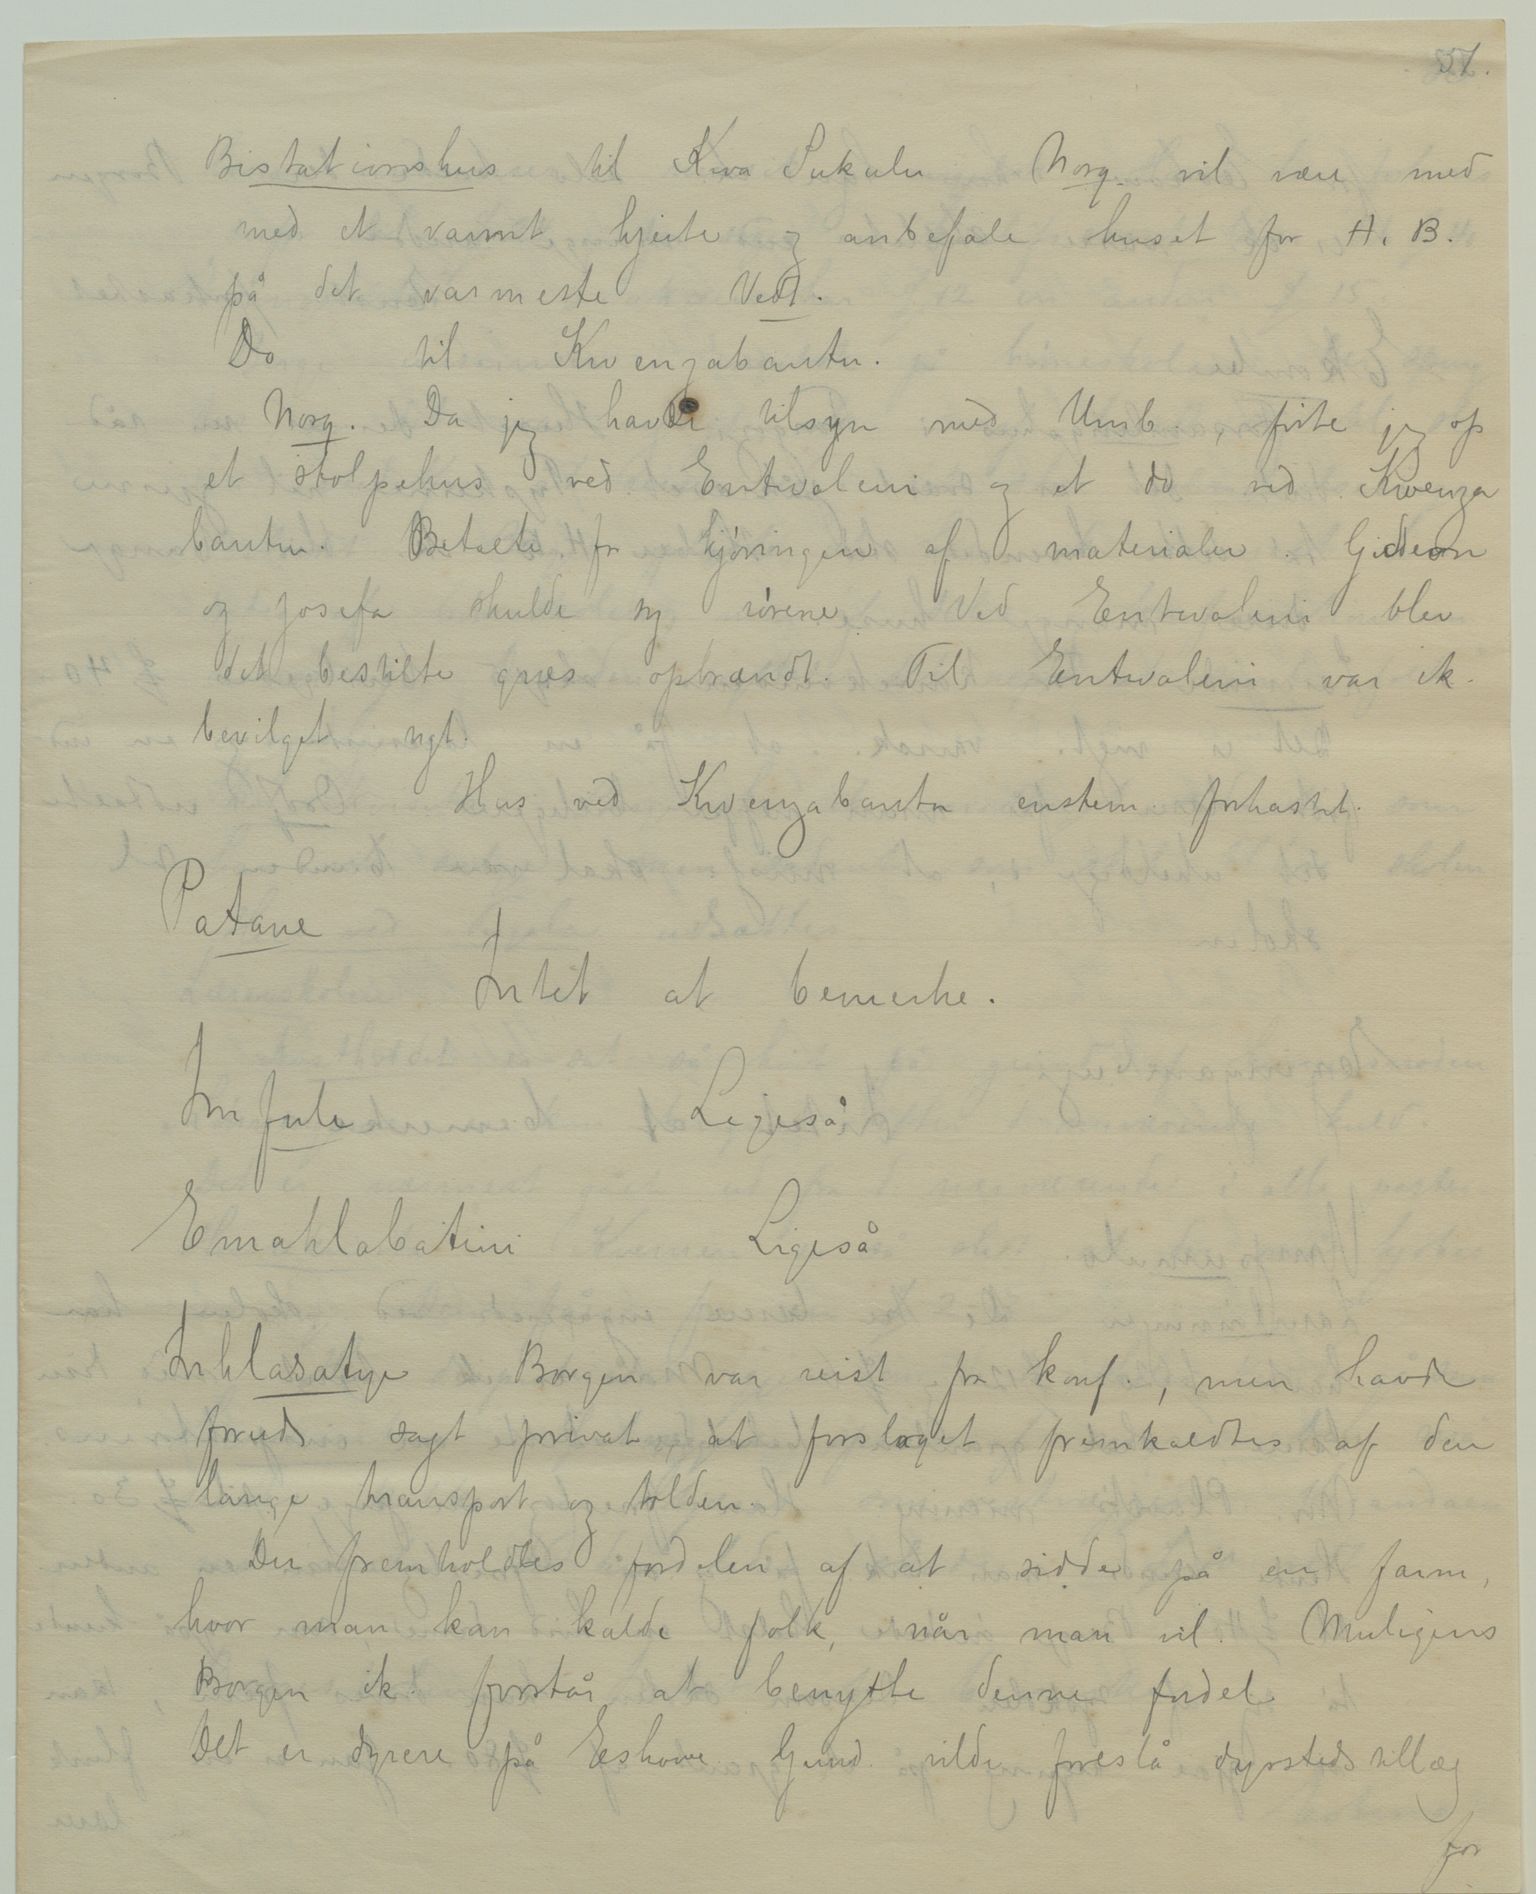 51.
Bistationshus til Kwa Sukulu Norg. vil være med
med et varmt hjerte og anbefale huset for H. B.
på det varmeste Vedt.
Do til Kwenzabantu.
Norg. Da jeg havde tilsyn med Umb., førte jeg op
et stolpehus ved Entwaleni og et do ved Kwenza
bantu. Betalte for kjøringen af materialer. Gideon
og Josefa skulde sy rørene. Ved Entwaleni blev
det bestilte græs opbrændt. Til Entwaleni var ik.
bevilget ngt.
Hus ved Kwenzabantu enstem. forkastet.
Patane
Intet at bemerke.
Imfule Ligeså
Emahlabatini Ligeså
Inhlasatye Borgen var reist fra konf., men havde
foruds sagt privat, at forslaget fremkaldtes af den
lange transport og tolden.
Der fremholdtes fordelen af at sidde på en farm,
hvor man kan kalde folk, når man vil. Muligens
Borgen ik. forstår at benytte denne fordel
Det er dyrere på Eshowe. Gund. vilde foreslå dyrstedstillæg
for